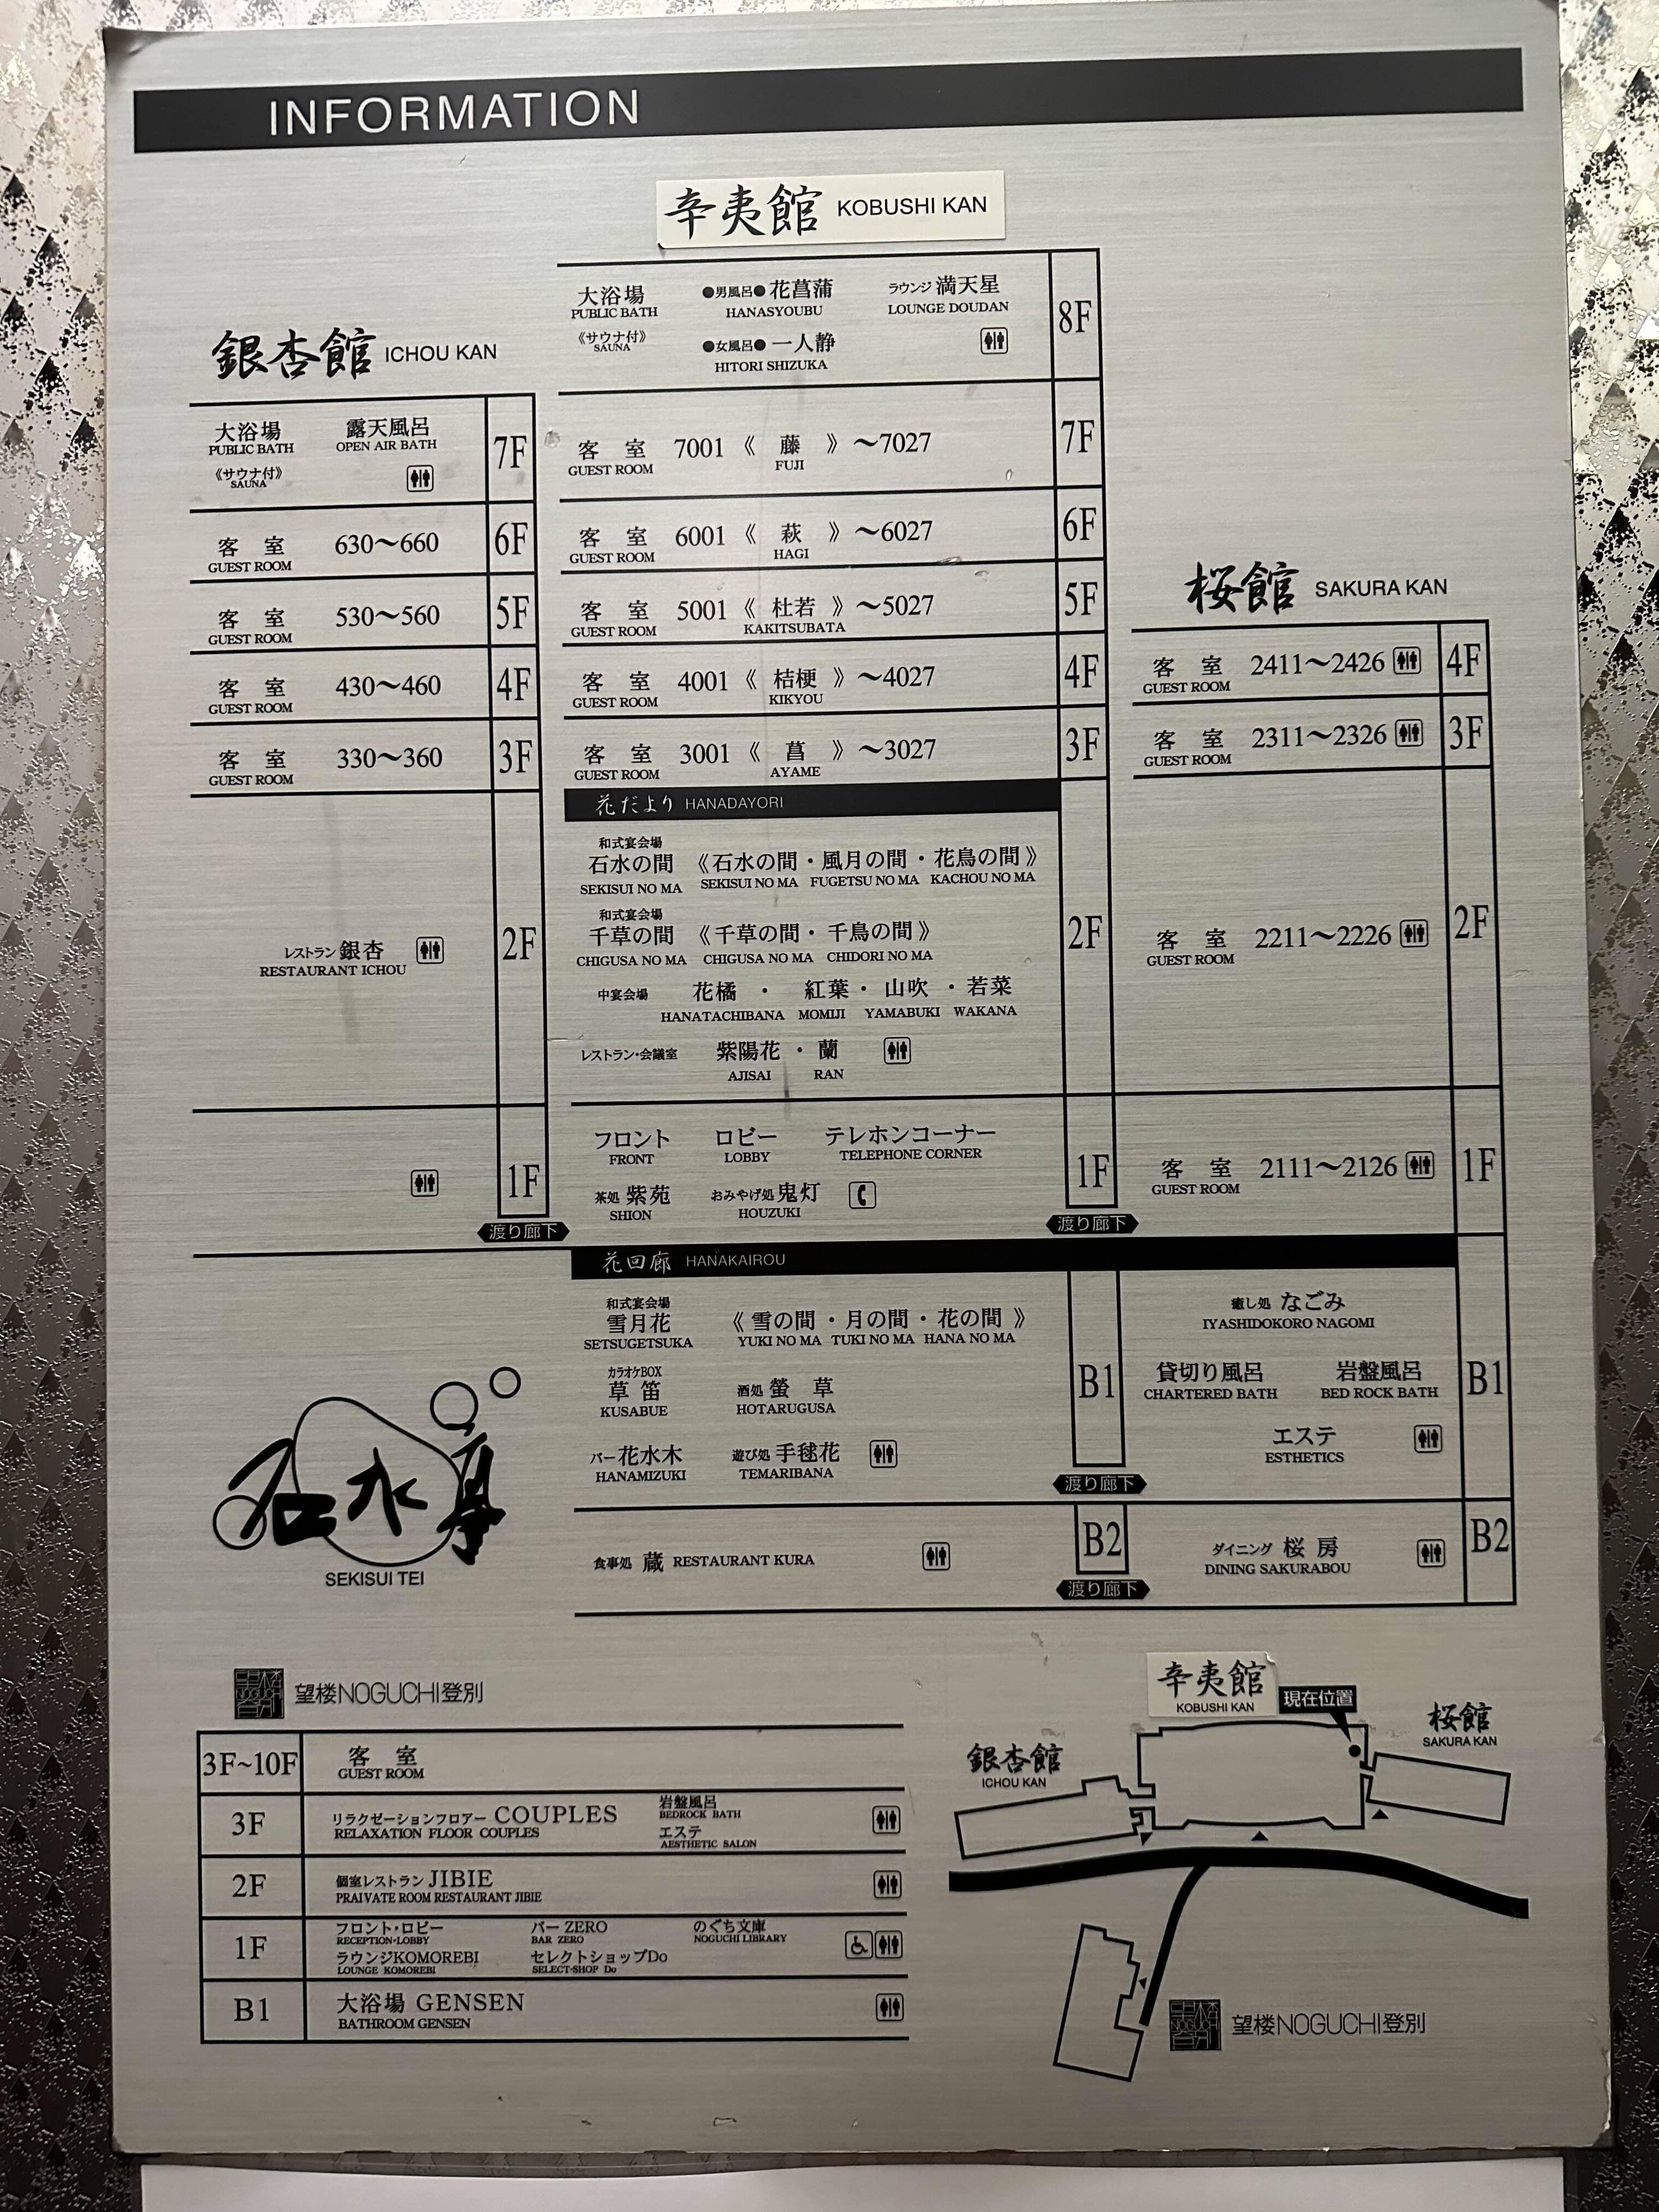 INFORMATION
辛夷館 KOBUSHI KAN
大浴場 ●男風呂● 花菖蒲 ラウンジ 満天星 8F
PUBLIC BATH HANASYOUBU LOUNGE DOUDAN
《サウナ付》 ●女風呂● 一人静
SAUNA HITORI SHIZUKA
客室 7001 《 藤 》 〜7027 7F
GUEST ROOM FUJI
客室 6001 《 萩 》 〜6027 6F
GUEST ROOM HAGI
客室 5001 《 杜若 》 〜5027 5F
GUEST ROOM KAKITSUBATA
客室 4001 《 桔梗 》 〜4027 4F
GUEST ROOM KIKYOU
客室 3001 《 菖 》 〜3027 3F
GUEST ROOM AYAME
花だより HANADAYORI
和式宴会場
石水の間 《石水の間・風月の間・花鳥の間》
SEKISUI NO MA SEKISUI NO MA FUGETSU NO MA KACHOU NO MA
和式宴会場
千草の間 《千草の間・千鳥の間》 2F
CHIGUSA NO MA CHIGUSA NO MA CHIDORI NO MA
中宴会場 花橘 ・ 紅葉・ 山吹 ・ 若菜
HANATACHIBANA MOMIJI YAMABUKI WAKANA
レストラン・会議室 紫陽花 ・ 蘭
AJISAI RAN
フロント ロビー テレホンコーナー
FRONT LOBBY TELEPHONE CORNER 1F
茶処 紫苑 おみやげ処 鬼灯
SHION HOUZUKI
渡り廊下
銀杏館 ICHOU KAN
大浴場 露天風呂 7F
PUBLIC BATH OPEN AIR BATH
《サウナ付》
SAUNA
客室 630〜660 6F
GUEST ROOM
客室 530〜560 5F
GUEST ROOM
客室 430〜460 4F
GUEST ROOM
客室 330〜360 3F
GUEST ROOM
レストラン 銀杏 2F
RESTAURANT ICHOU
1F
渡り廊下
桜館 SAKURA KAN
客室 2411〜2426 4F
GUEST ROOM
客室 2311〜2326 3F
GUEST ROOM
客室 2211〜2226 2F
GUEST ROOM
客室 2111〜2126 1F
GUEST ROOM
花回廊 HANAKAIROU
和式宴会場
雪月花 《 雪の間・月の間・花の間 》
SETSUGETSUKA YUKI NO MA TUKI NO MA HANA NO MA
カラオケBOX
草笛 酒処 螢草 B1
KUSABUE HOTARUGUSA
バー 花水木 遊び処 手毬花
HANAMIZUKI TEMARIBANA
渡り廊下
癒し処 なごみ
IYASHIDOKORO NAGOMI
貸切り風呂 岩盤風呂 B1
CHARTERED BATH BED ROCK BATH
エステ
ESTHETICS
食事処 蔵 RESTAURANT KURA B2
渡り廊下
ダイニング 桜房 B2
DINING SAKURABOU
石水亭
SEKISUI TEI
望楼NOGUCHI登別
3F~10F 客室
GUEST ROOM
3F リラクゼーションフロアー COUPLES 岩盤風呂
RELAXATION FLOOR COUPLES BEDROCK BATH
エステ
AESTHETIC SALON
2F 個室レストラン JIBIE
PRAIVATE ROOM RESTAURANT JIBIE
1F フロント・ロビー バー ZERO のぐち文庫
RECEPTION・LOBBY BAR ZERO NOGUCHI LIBRARY
ラウンジKOMOREBI セレクトショップDo
LOUNGE KOMOREBI SELECT-SHOP Do
B1 大浴場 GENSEN
BATHROOM GENSEN
辛夷館
KOBUSHI KAN
現在位置
桜館
SAKURA KAN
銀杏館
ICHOU KAN
望楼NOGUCHI登別